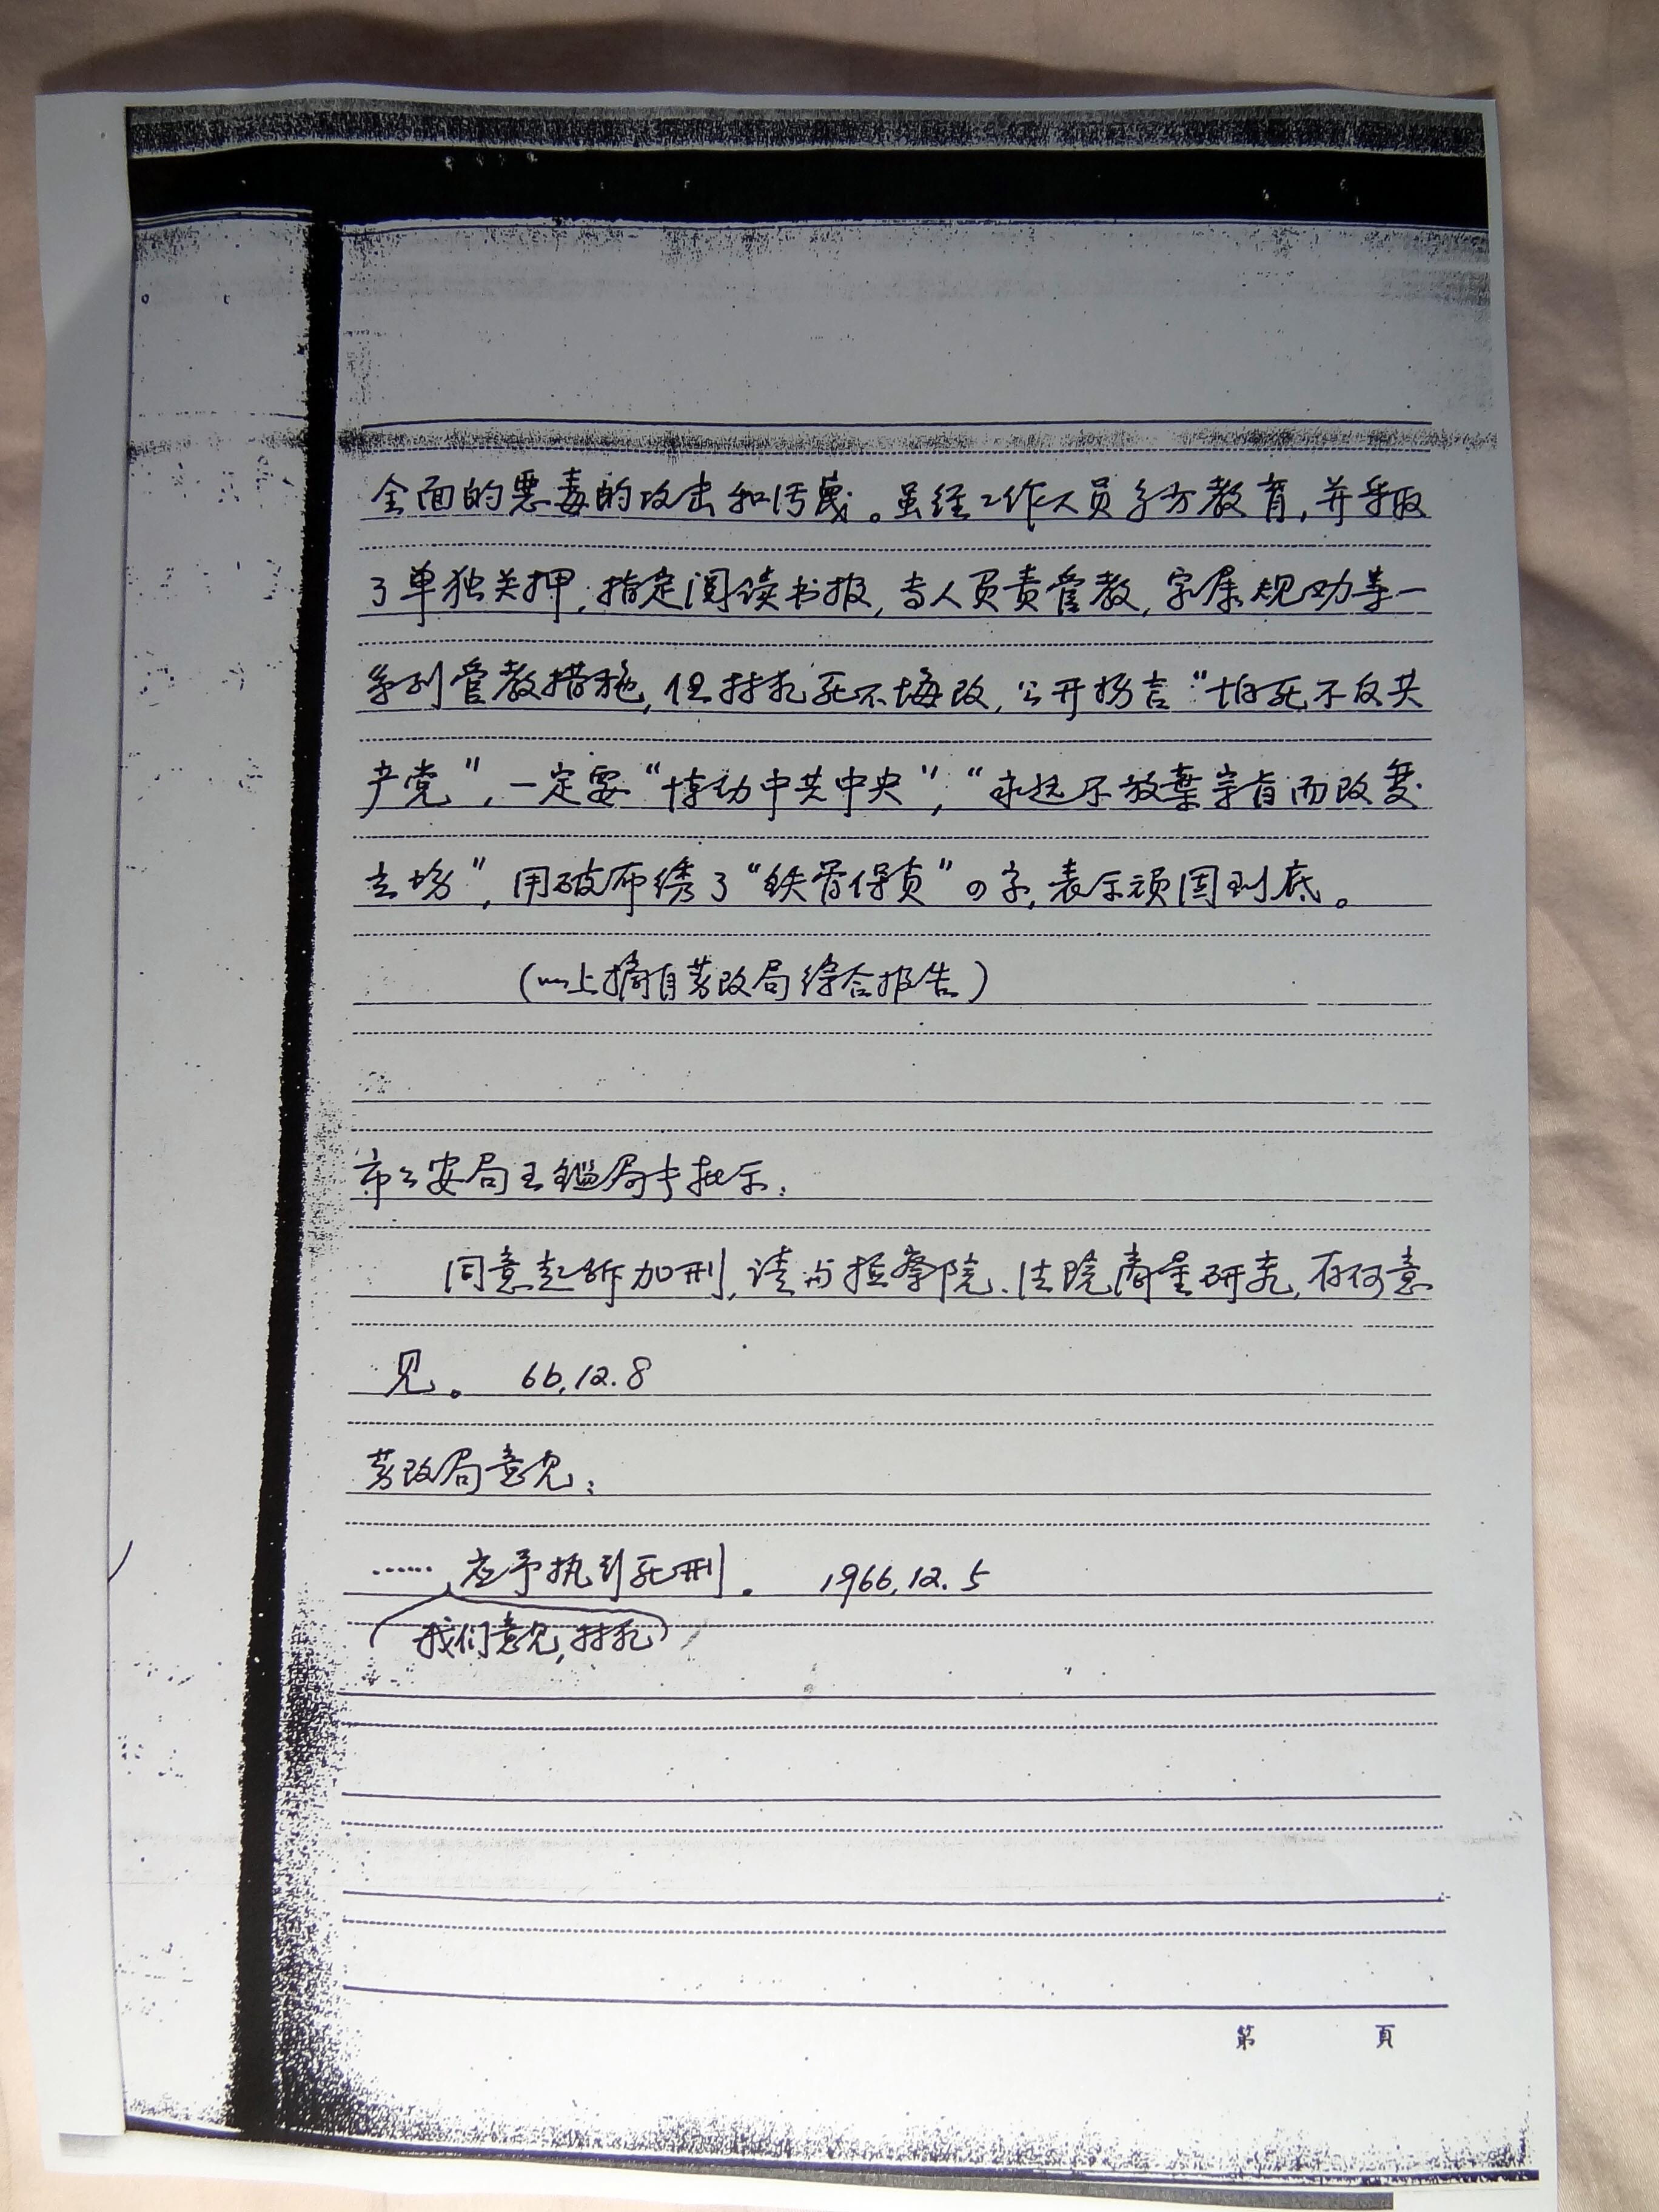 全面的恶毒的攻击和污蔑。虽经工作人员多方教育，并采取
了单独关押，指定阅读书报，专人负责管教，家属规劝等一
系列管教措施，但林犯死不悔改，公开扬言“怕死不反共
产党”，一定要“悼劾中共中央”，“永远不放棄宗旨而改变
立场”，用破布绣了“铁骨保贞”四字，表示顽固到底。
（以上摘自劳改局综合报告）
市公安局王鑑局长批示：
同意起诉加刑，请与检察院、法院商量研究，有何意
见。 66.12.8
劳改局意见：
……应予执行死刑。 1966.12.5
（我们意见，林犯）
第 頁